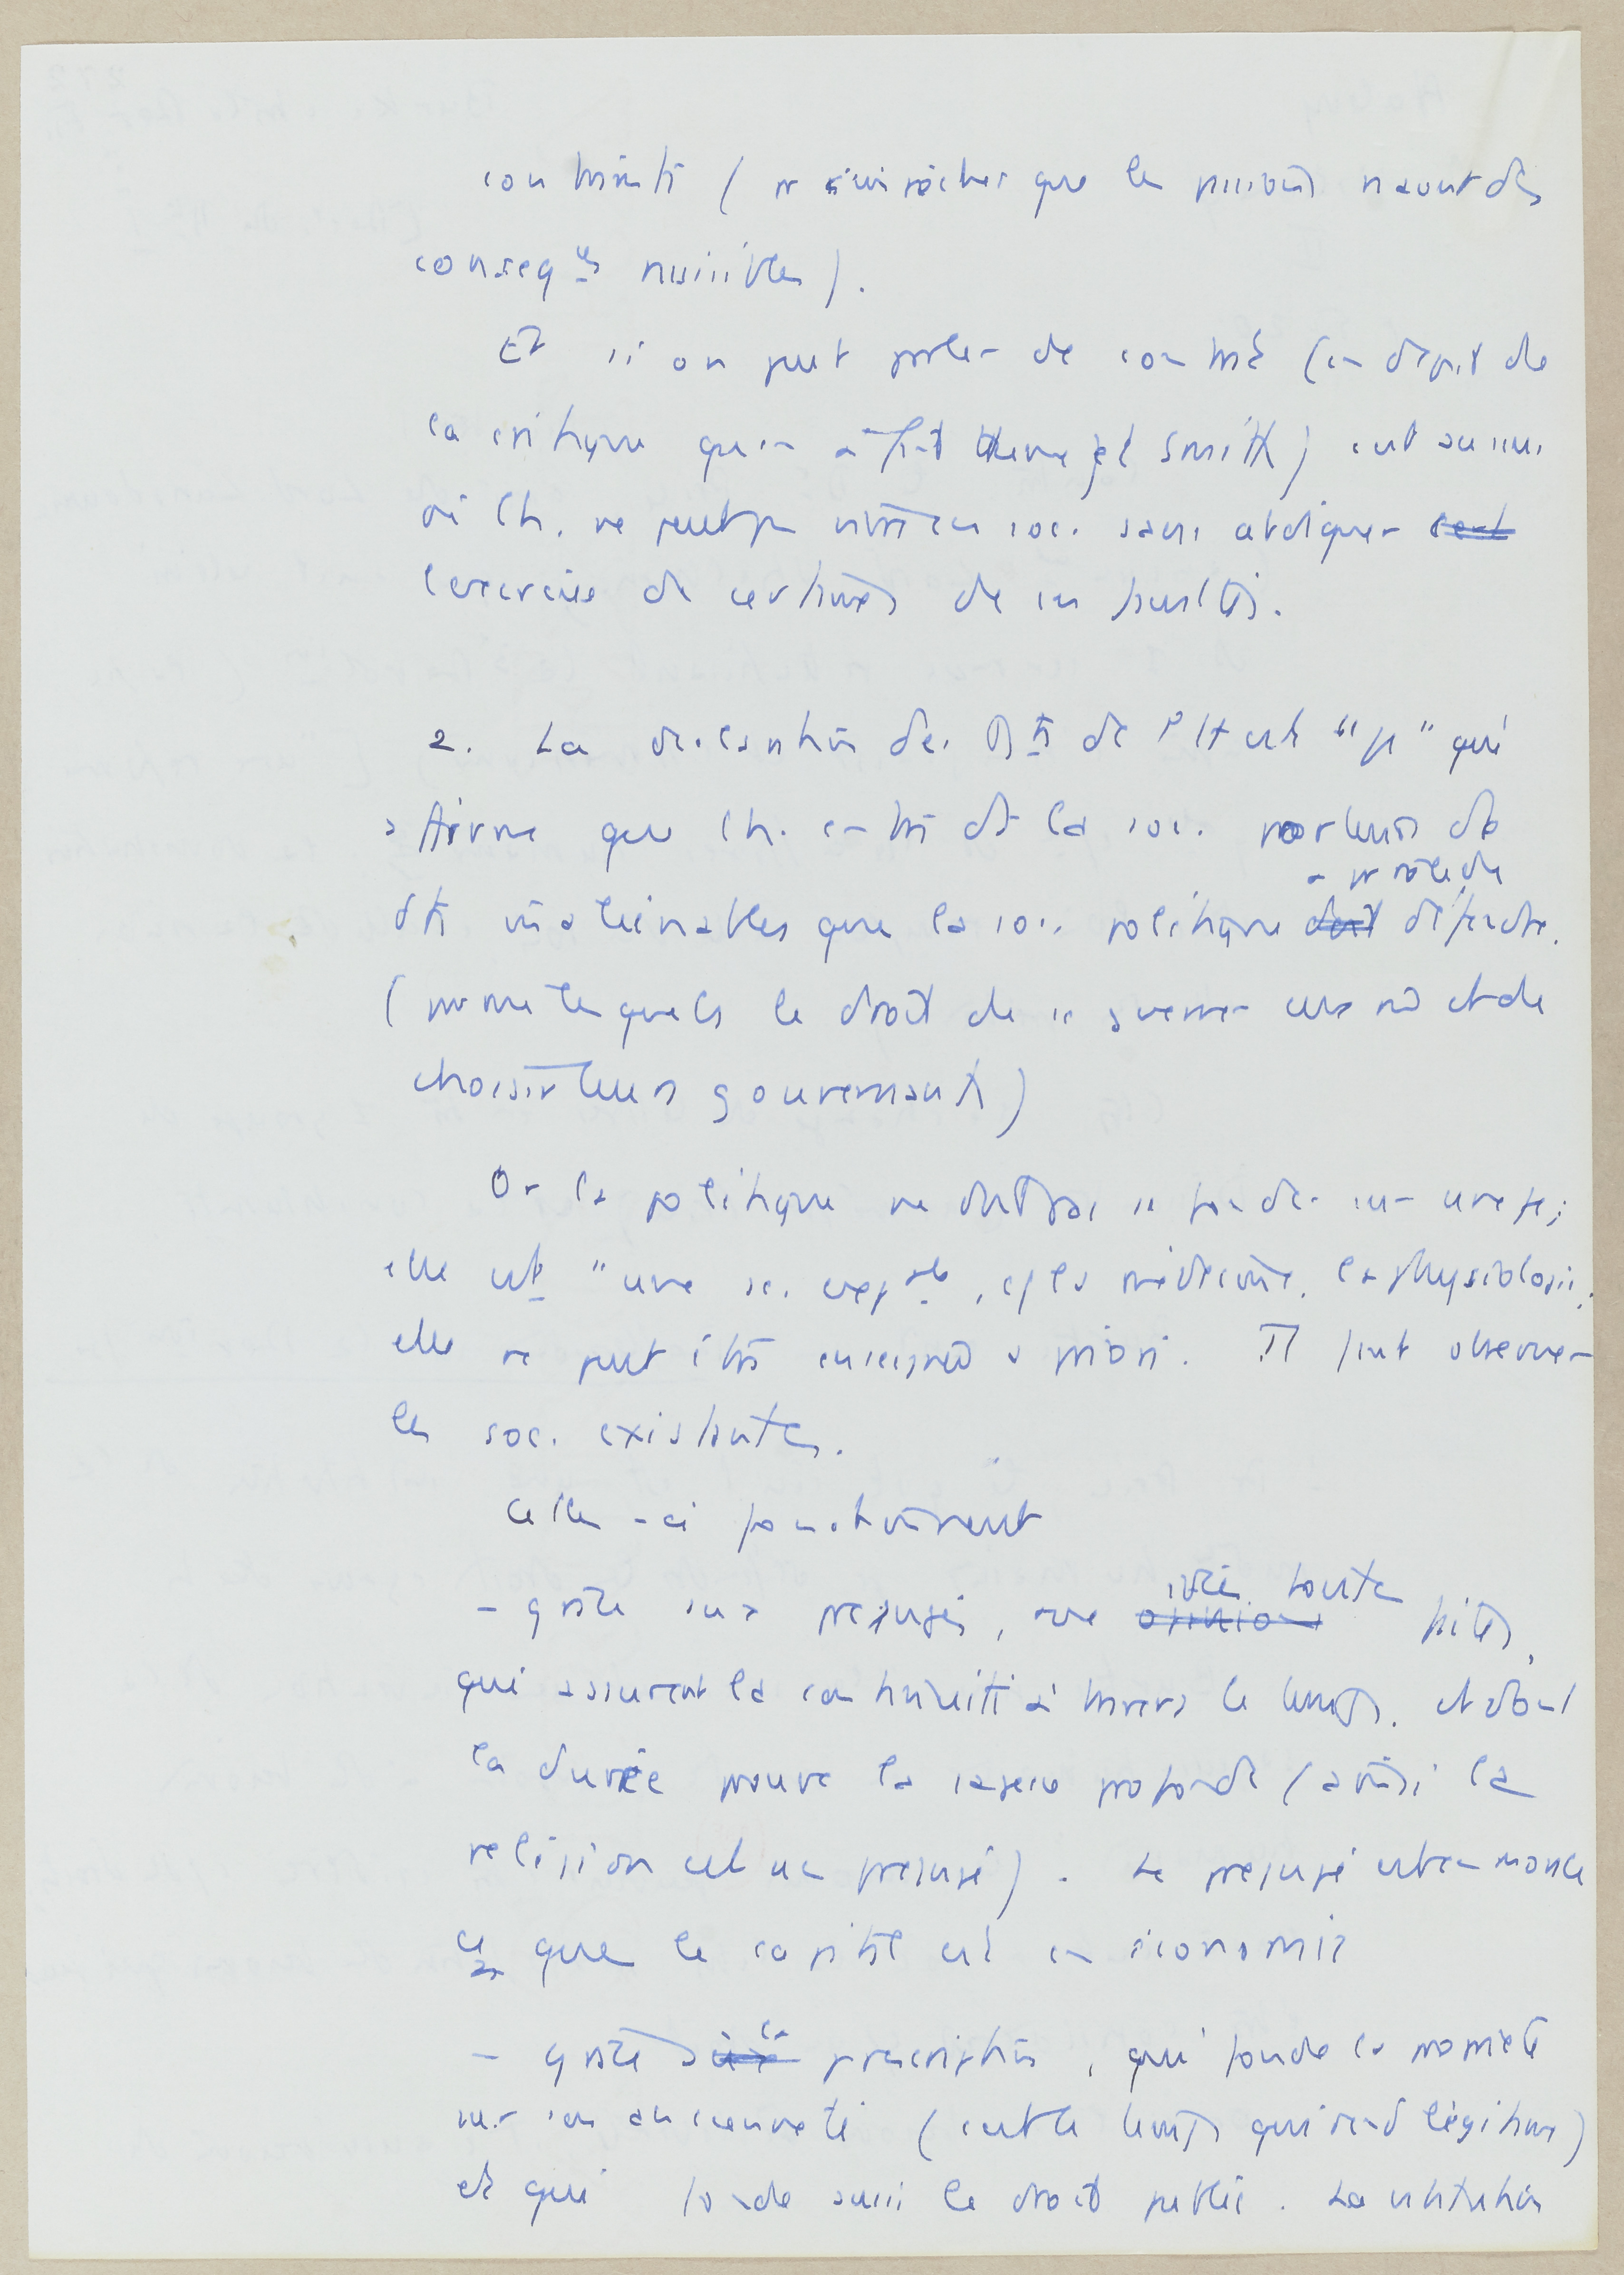 contraints (pr empêcher que les passions n'aient des
conseq ces nuisibles).
Et si on peut parler de contrat (en dépit de
la critique qu'en a fait Hume et Smith) c'est aussi
où l'h. ne peut pas vivre en soc. sans abdiquer
l'exercice de certaines de ses facultés.
2. La declaration des Dts de l'H est qui
affirme que l'h. entre ds la soc. porteur de
dts inaliénables que la soc. politique ~~doit~~ a pr rôle de défendre.
(parmi lesquels le droit de se gouverner eux mê et de
choisir leurs gouvernants)
Or la politique ne doit pas se fonder sur
elle est "une sc. exp ale, cf la médecine, la physiologie,
elle ne peut être enseignée a priori. Il faut observer
les soc. existantes.
Celles-ci fonctionnent
- grâce aux préjugés, ~~opinion~~ idée toute faites,
qui assurent la continuité à travers le temps, et dont
la durée prouve la sagesse profonde (ainsi la
religion est un préjugé). Le préjugé est en morale
ce que le capital est en économie
- grâce à la prescription, qui fonde la propriété
sur son ancienneté (c'est le temps qui rend légitime)
et qui fonde aussi le droit public. La